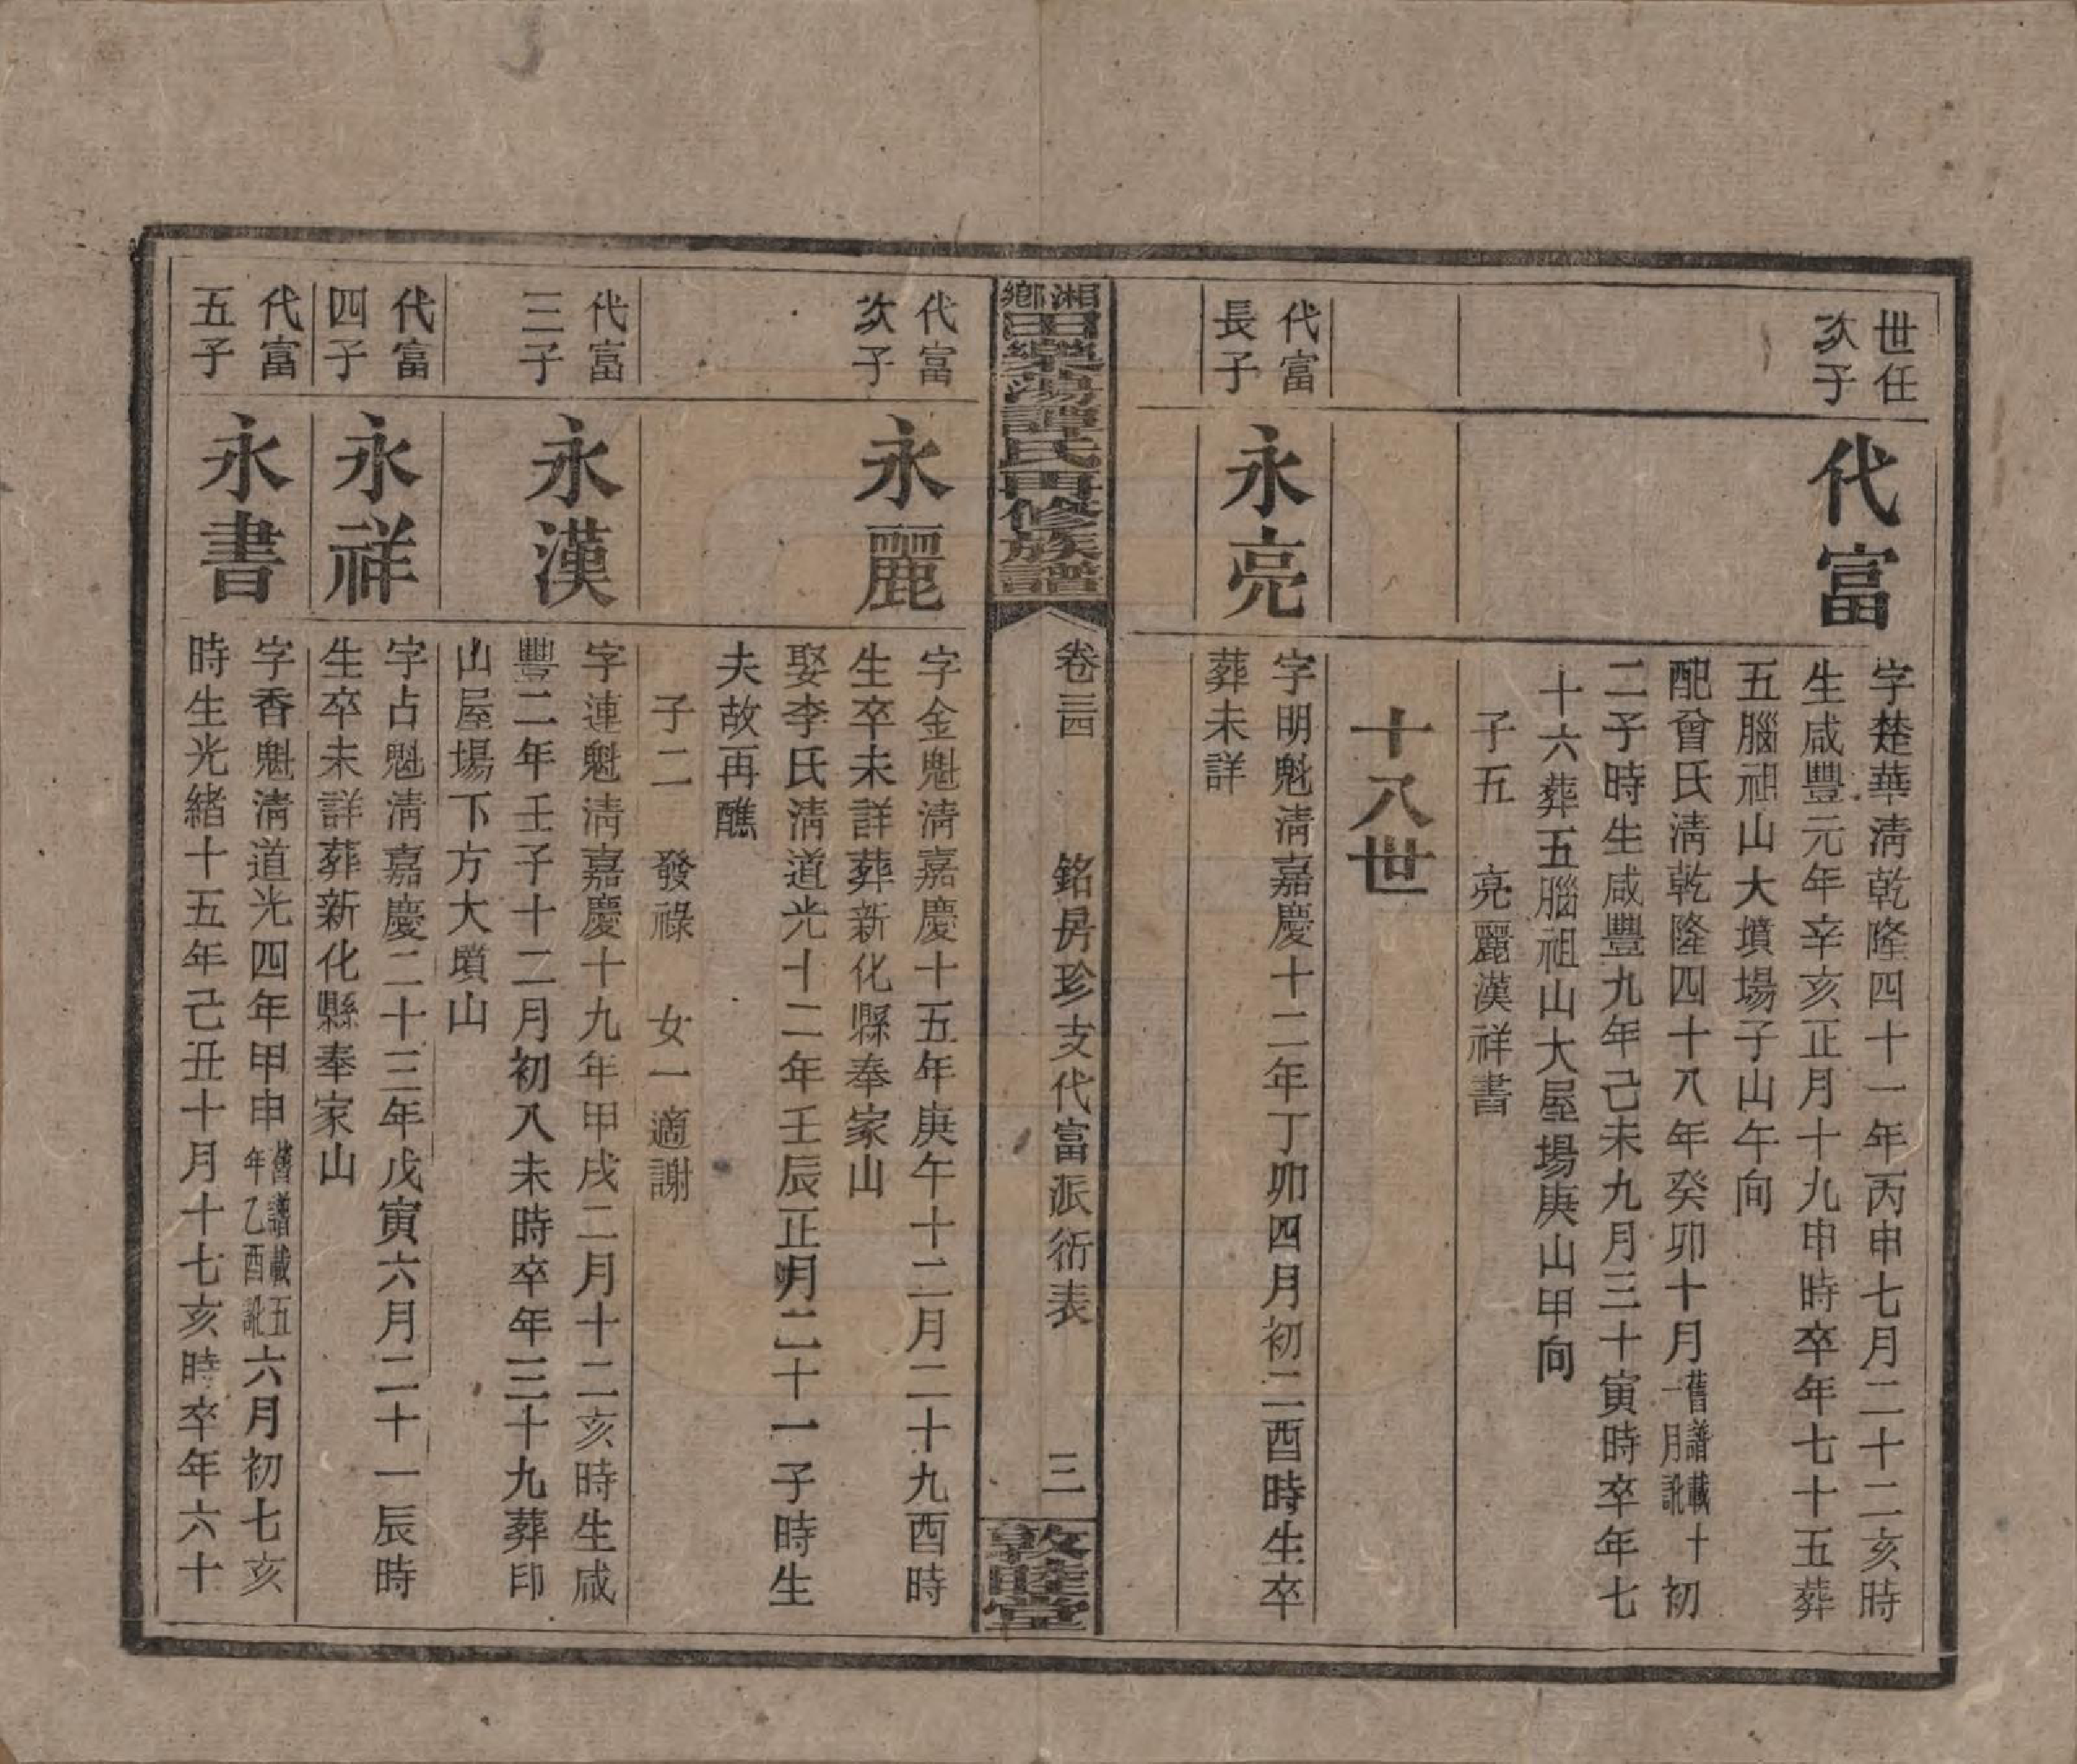 世任
次子
代富
字楚華淸乾隆四十一年丙申七月二十二亥時
生咸豐元年辛亥正月十九申時卒年七十五葬
五腦祖山大墳場子山午向
配曾氏淸乾隆四十八年癸卯十月舊譜載十一月訛初
二子時生咸豐九年己未九月三十寅時卒年七
十六葬五腦祖山大屋場庚山甲向
子五　亮麗漢祥書
十八世
代富
長子
永亮
字明魁淸嘉慶十二年丁卯四月初二酉時生卒
葬未詳
湘鄉田樂湯譚氏再修族譜
卷三四
銘房珍支代富派衍表
三
敦睦堂
代富
次子
永麗
字金魁淸嘉慶十五年庚午十二月二十九酉時
生卒未詳葬新化縣奉家山
娶李氏淸道光十二年壬辰正月二十一子時生
夫故再醮
子二　發祿　女一適謝
代富
三子
永漢
字連魁淸嘉慶十九年甲戌二月十二亥時生咸
豐二年壬子十二月初八未時卒年三十九葬印
山屋場下方大墳山
代富
四子
永祥
字占魁淸嘉慶二十三年戊寅六月二十一辰時
生卒未詳葬新化縣奉家山
代富
五子
永書
字香魁淸道光四年甲申舊譜載五年乙酉訛六月初七亥
時生光緒十五年己丑十月十七亥時卒年六十